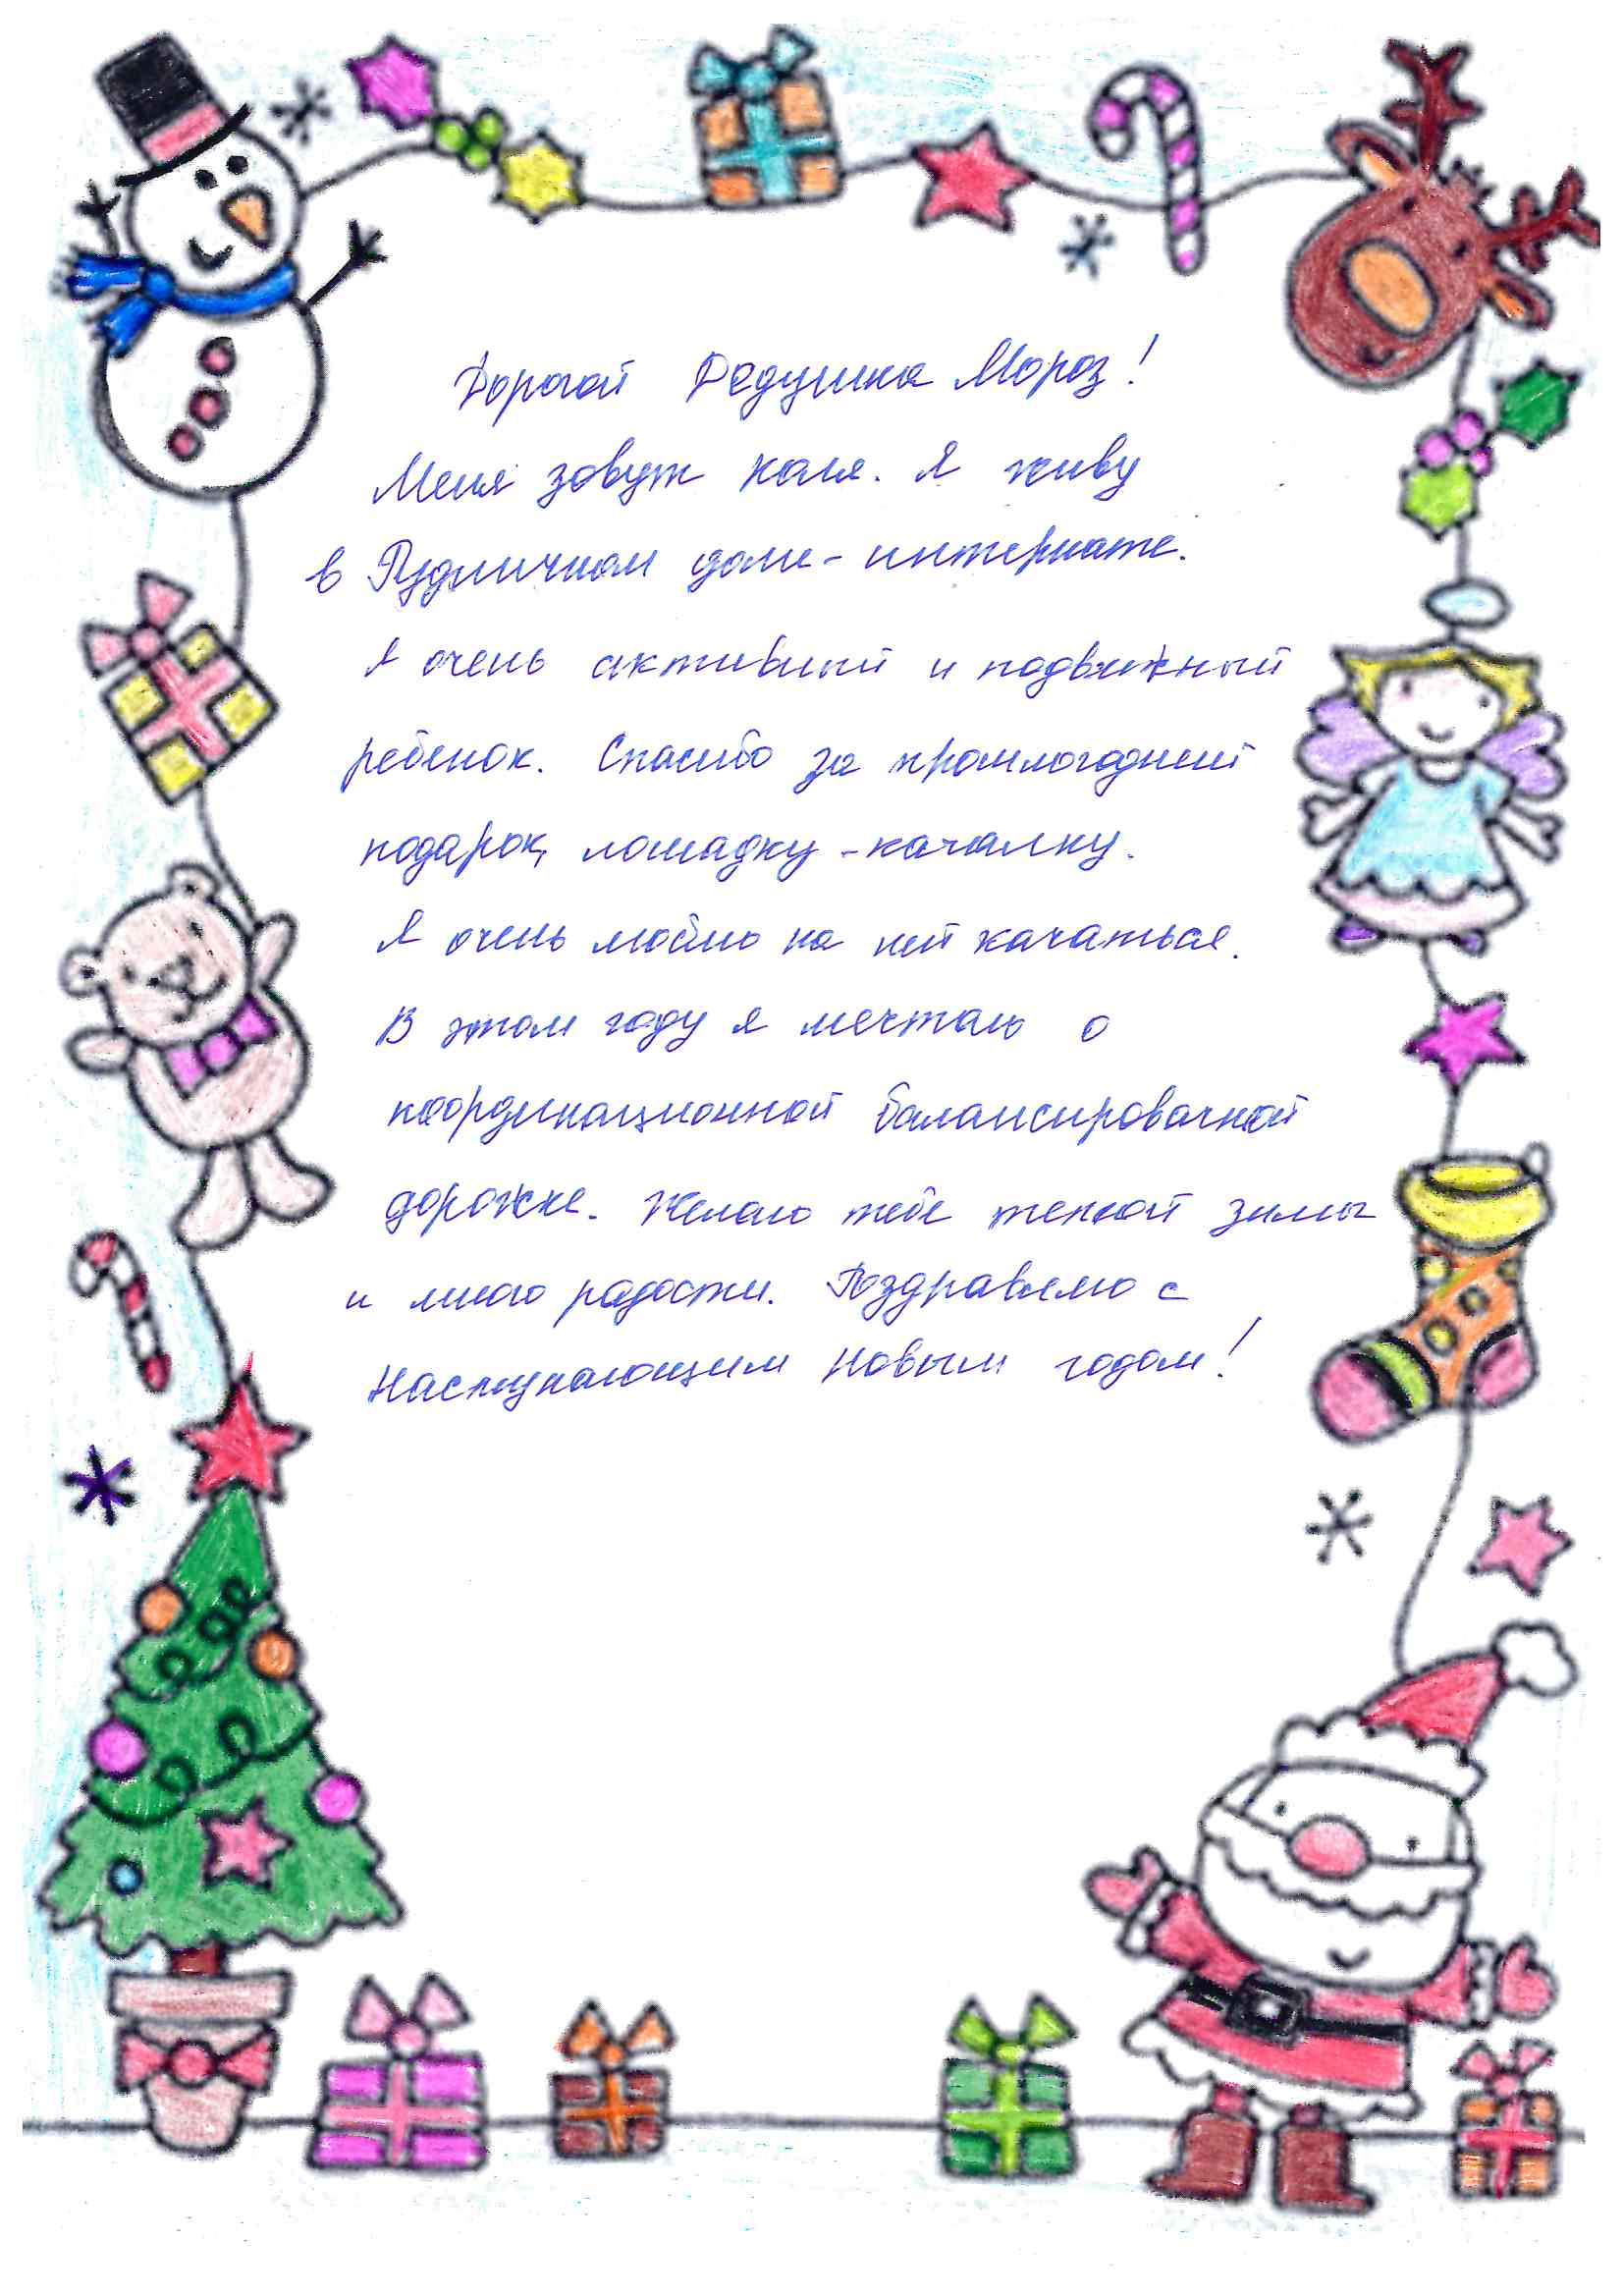 Дорогой Дедушка Мороз!
Меня зовут Коля. Я живу
в Рудничном доме-интернате.
Я очень активный и подвижный
ребенок. Спасибо за прошлогодний
подарок, лошадку-качалку.
Я очень люблю на ней качаться.
В этом году я мечтаю о
координационной балансировочной
дорожке. Желаю тебе теплой зимы
и много радости. Поздравляю с
Наступающим Новым годом!